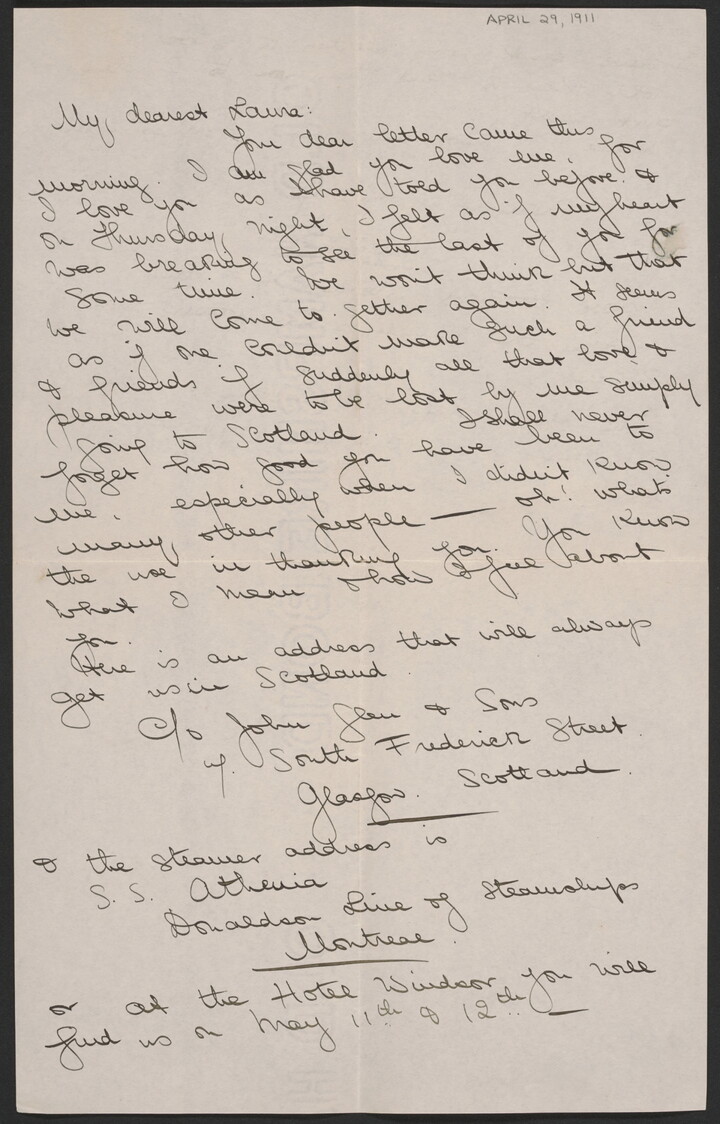 APRIL 29, 1911
My dearest Laura:
Your dear letter came this
morning. I am glad you love me, for
I love you as I have told you before. &
on Thursday night, I felt as if my heart
was breaking to see the last of you for
some time. We won't think but that
we will come to gether again. It seems
as if one couldn't make such a friend
& friends if suddenly all that love &
pleasure were to be lost by me simply
going to Scotland. I shall never
forget how good you have been to
me. especially when I didn't know
many other people — oh! what's
the use in thanking you. You know
what I mean & how I feel about
you.
Here is an address that will always
get us in Scotland.
c/o John Glen & Sons
South Frederick Street.
Glasgow. Scotland.
& the steamer address is
S.S. Athenia
Donaldson Line of Steamships
Montreal.
or at the Hotel Windsor you will
find us on May 11th & 12th. —